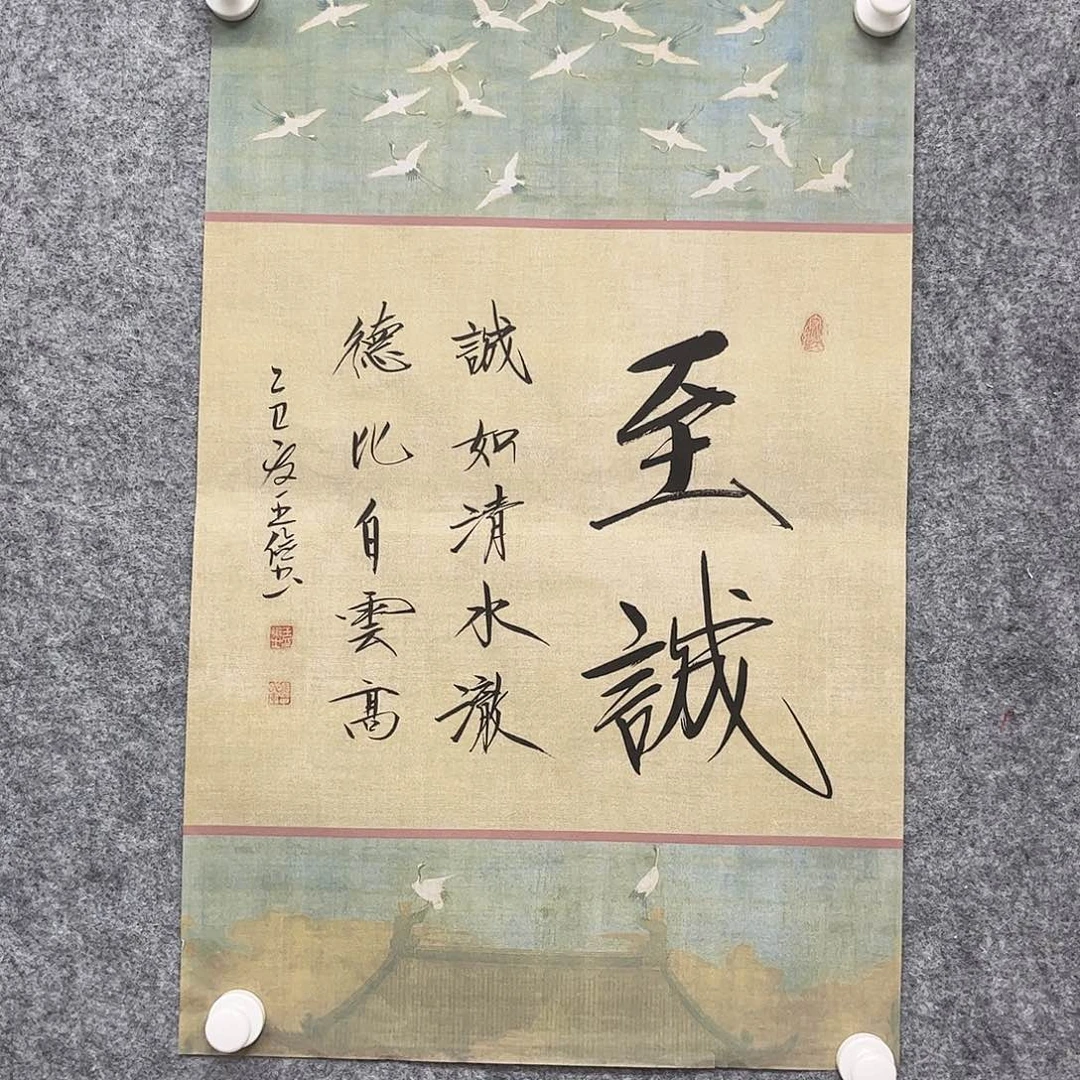 至誠
誠如清水澈
德比白雲高
乙巳夏王